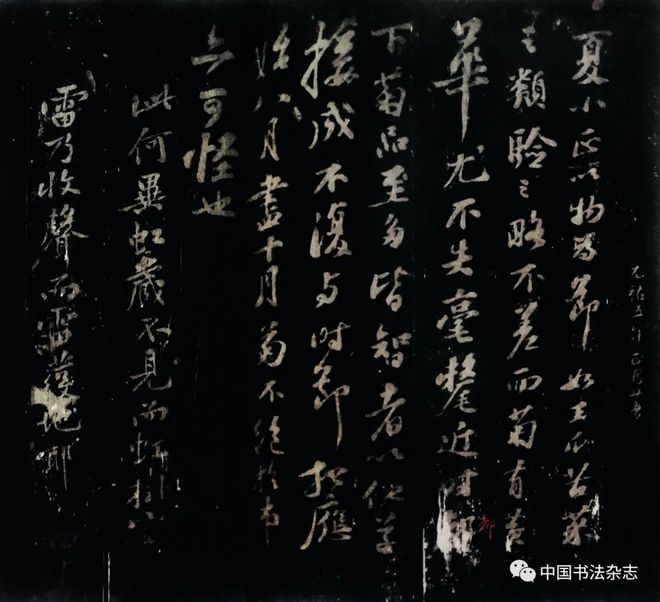 夏小正以物為節如王瓜苦菜
之類驗之略不差而菊有黃
華尤不失毫釐近时都
下菊品至多皆智者以他草
接成不復与时節相應
始八月盡十月菊不絕於市
亦可怪也
此何異虹歲不見而
雷乃收聲而雷地耶
元祐五年正月廿
都
中国书法杂志